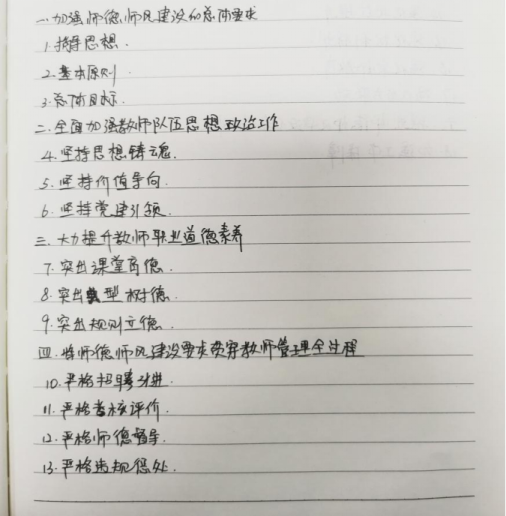 一.加强师德师风建设的总体要求
1.指导思想.
2.基本原则.
3.总体目标.
二.全面加强教师队伍思想政治工作
4.坚持思想铸魂.
5.坚持价值导向
6.坚持党建引领.
三.大力提升教师职业道德素养
7.突出课堂育德.
8.突出典型树德.
9.突出规则立德.
四.将师德师风建设要求贯穿教师管理全过程
10.严格招聘引进.
11.严格考核评价.
12.严格师德督导.
13.严格违规惩处.